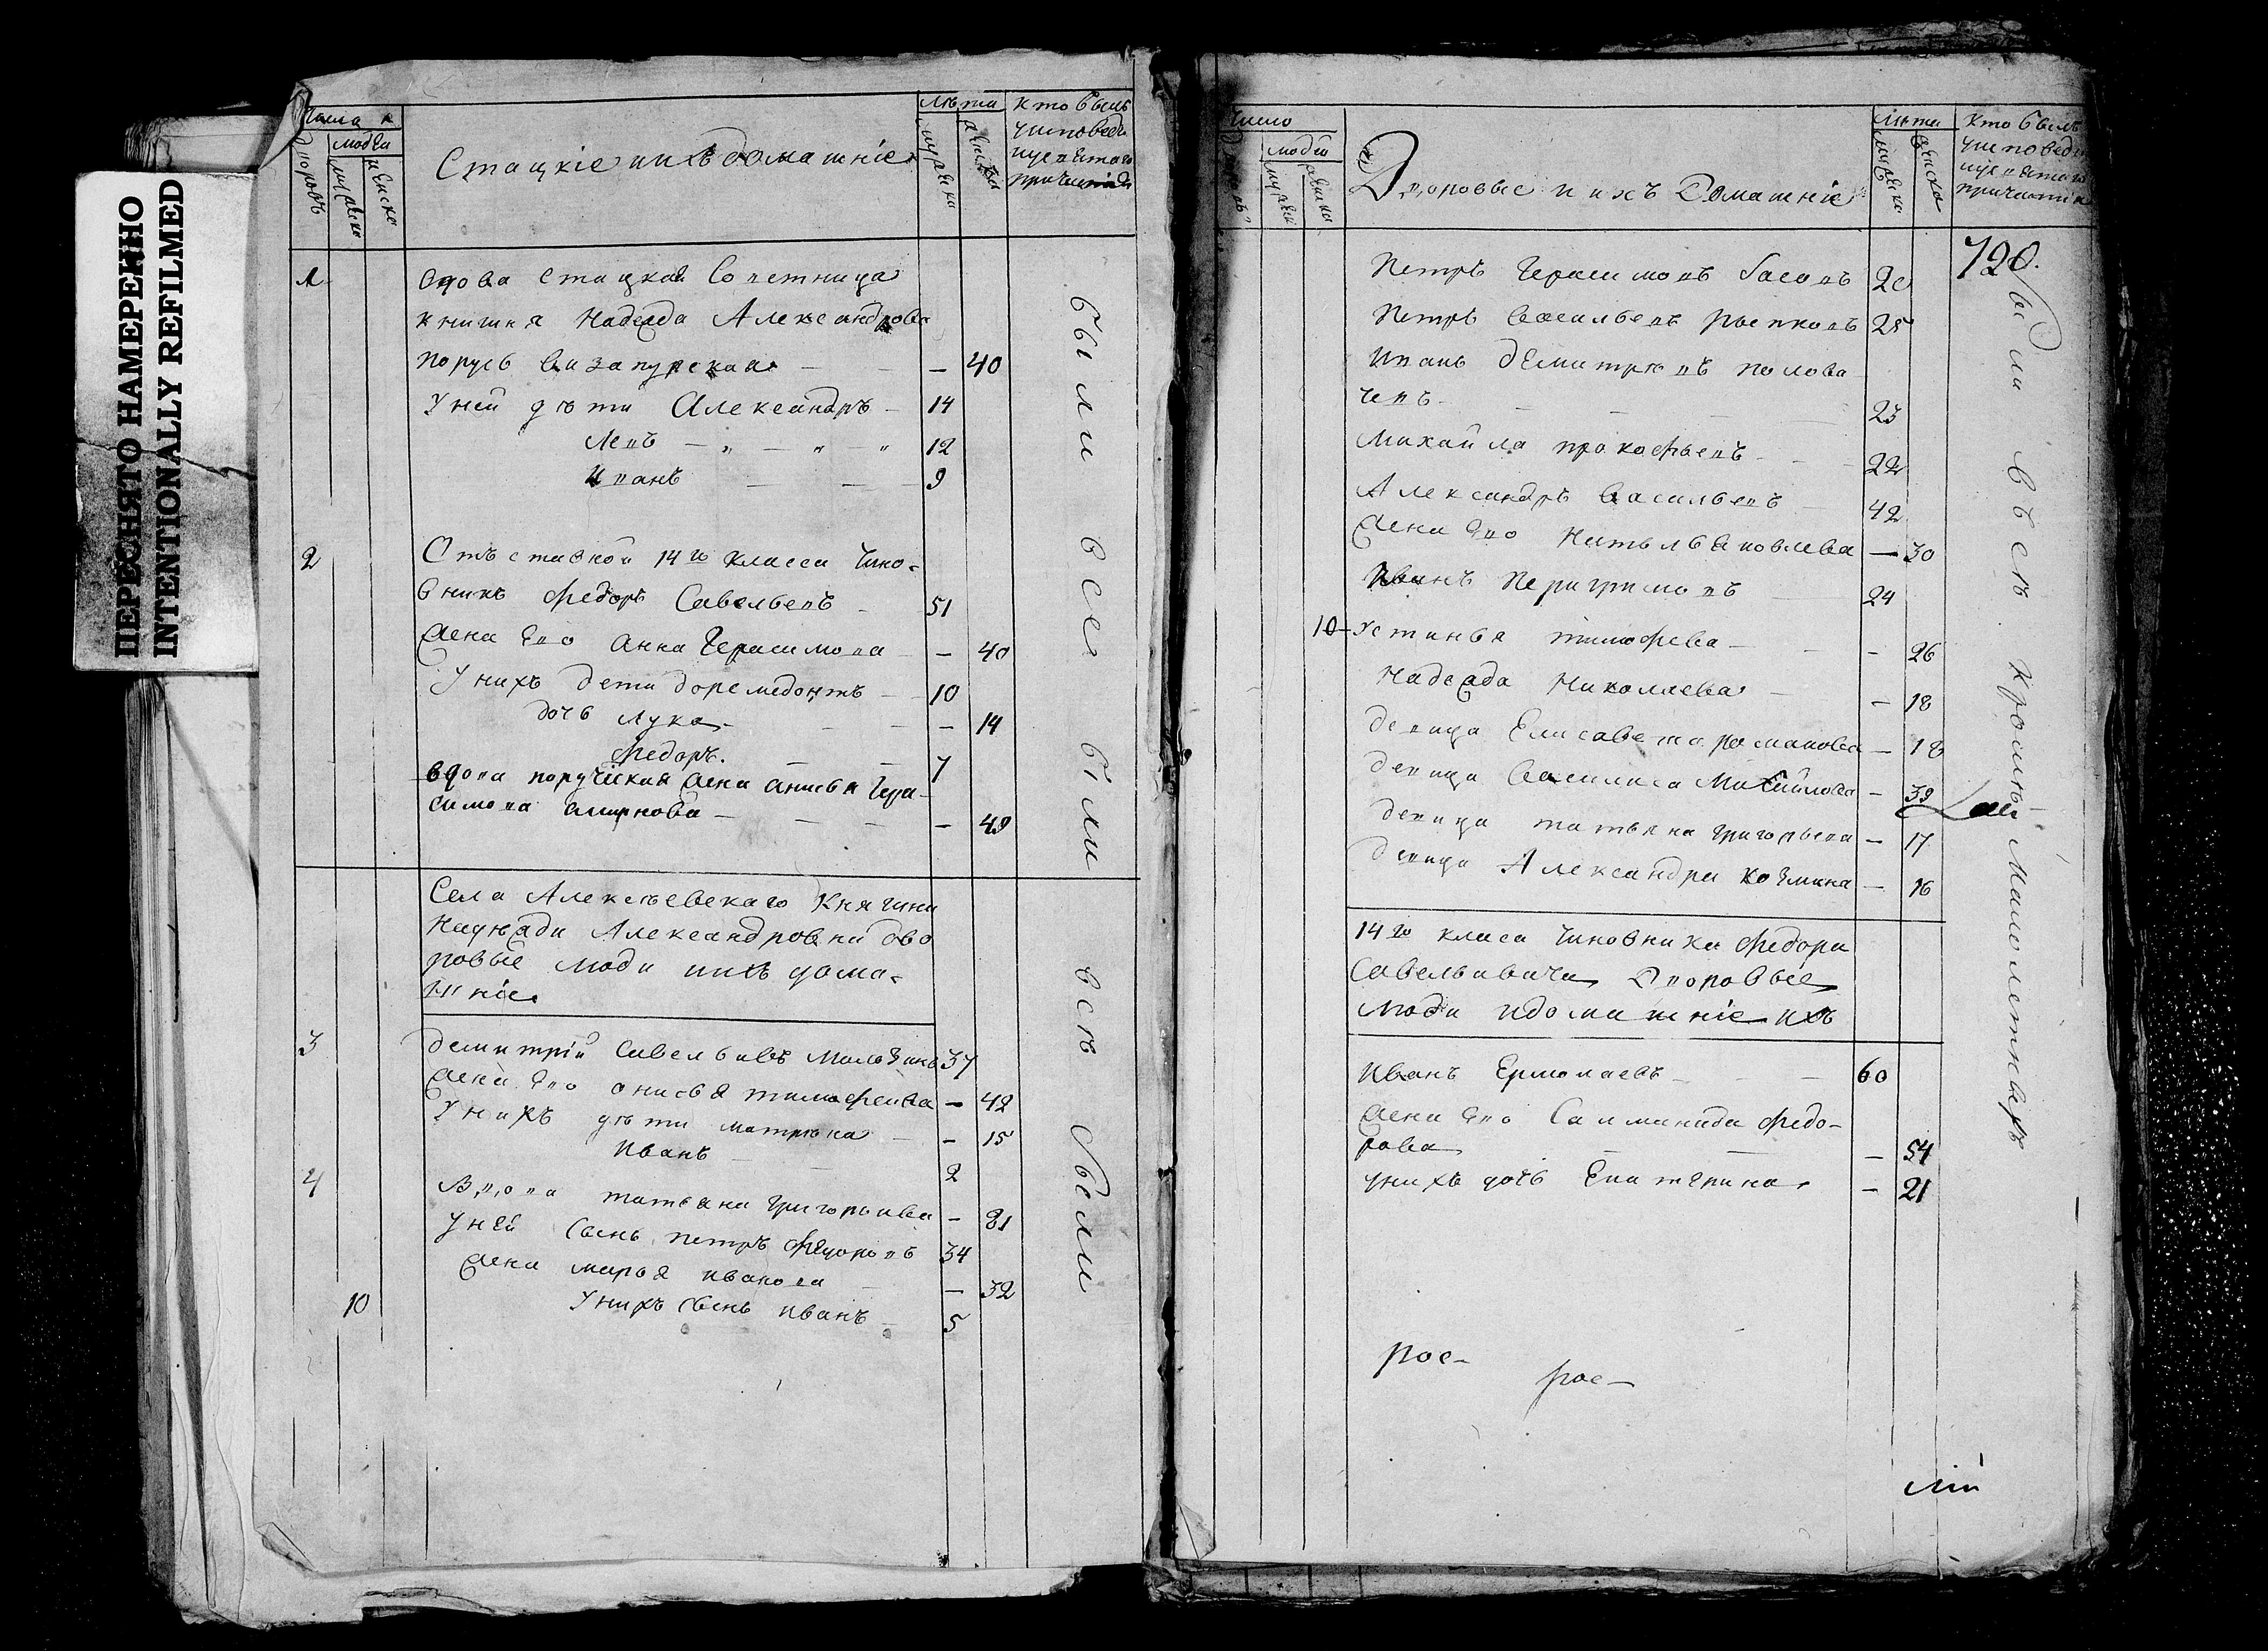 ПЕРЕСНЯТО НАМЕРЕННО
INTENTIONALLY REFILMED
Числа
людей
дворовъ
мужска
женска
Стацкіе и ихъ домашніе
лѣта
мужска
женска
кто былъ
у исповеди
и у святаго
причастія
1
Вдова стацкая Советница
княгиня Надежда Александрова
Порусь Визапурская — — 40
У ней дѣти Александръ — 14
Левъ — „ — „ „ 12
Иванъ — — 9
2
Отъставной 14го класса чино-
вникъ Федоръ Савельевъ — 51
Жена Его Анна Герасимова — — 40
У нихъ дети Доремедонтъ — 10
дочь Лука — — — 14
Федоръ. — — 7
вдова поручикая жена анисья Гера-
симова Смирнова — — — — 49
Села Алексѣевскаго Княгини
Надѣжди Александровни дво
ровые люди и ихъ дома-
шніе
3
Демитрій Савельивъ 37
Жена Его онисья тимофеива — 42
У нихъ дѣти матрѣна — — 15
Иванъ — — 2
4
Вдова татьяна григорьива — 81
У ней сынь петръ Федоровъ 34
Жена марья иванова — — 32
10
У нихъ сынь иванъ — 5
были все были всѣ были
Число
людей
дворовъ
мужска
женска
Дворовые и ихъ Домашніе
лѣта
мужска
женска
кто былъ
у исповеди
и у святаго
причастія
720.
Петръ Герасимовъ 20
Петръ Васильевъ 25
Иванъ Демитрювъ полова
чевъ — — — — 23
Михайла прокофьевъ — — 22
Александръ Васильевъ — 42
Жена Его Наталья Яковлева — 30
Иванъ — 24
10 — Устинья тимофева — — — 26
Надежда Николаева — — 18
девица Елисавета романова — 18
девица Василиса Михайлова — 39
девица татьяна григорьева — 17
девица Александра козмина — 16
14го класа чиновника Федора
Савельивича Дворовые
люди и домашніе ихъ
Иванъ Ермолаевъ — — — 60
Жена Его Саламанида Федо-
рова — — — 54
у нихъ дочь Екатерина. — 21
были всѣ кромѣ малолетныхъ
рос-
рос-